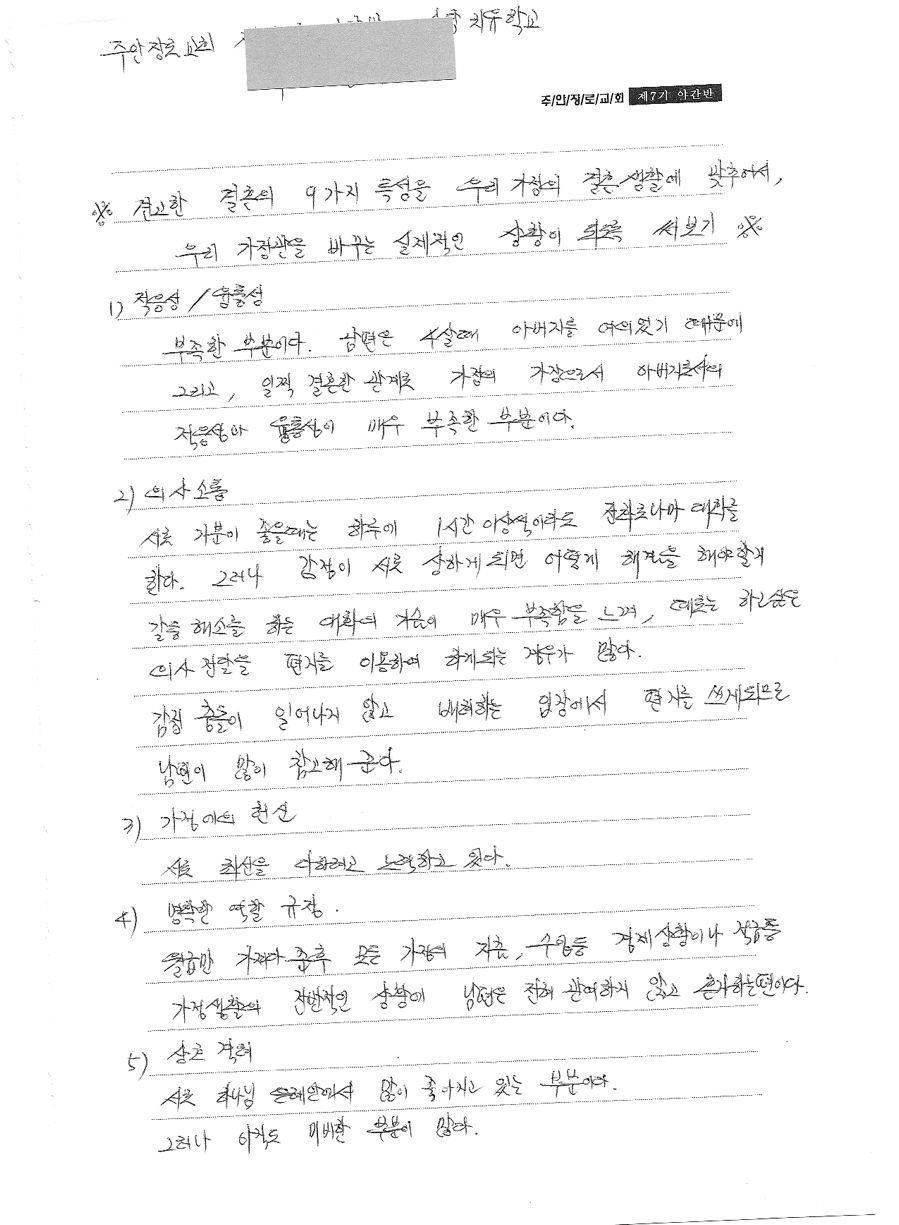 주안장로교회 치유학교
주/안/장/로/교/회 제7기 야간반
※ 견고한 결혼의 9가지 특성을 우리 가정의 결혼생활에 맞추어서,
우리 가정관을 바꾸는 실제적인 상황이 되도록 써보기 ※
1) 적응성 / 융통성
부족한 부분이다. 남편은 4살때 아버지를 여의었기 때문에
그리고, 일찍 결혼한 관계로 가정의 가장으로서 아버지로서의
적응성과 융통성이 매우 부족한 부분이다.
2) 의사소통
서로 기분이 좋을때는 하루에 1시간 이상씩이라도 전화로나마 대화를
한다. 그러나 감정이 서로 상하게 되면 어떻게 해결을 해야 할지
갈등 해소를 하는 대화의 기술이 매우 부족함을 느껴, 때로는 하고싶은
의사 전달을 편지를 이용하여 하게되는 경우가 많다.
감정 충돌이 일어나지 않고 배려하는 입장에서 편지를 쓰게되므로
남편이 많이 참고해 준다.
3) 가정에의 헌신
서로 최선을 다하려고 노력하고 있다.
4) 명확한 역할 규정.
월급만 가져다 준후 모든 가정의 지출, 수입등 경제상황이나 적금등
가정생활의 전반적인 상황에 남편은 전혀 관여하지 않고 혼자하는편이다.
5) 상호 격려
서로 하나님 은혜안에서 많이 좋아지고 있는 부분이다.
그러나 아직도 미비한 부분이 많다.